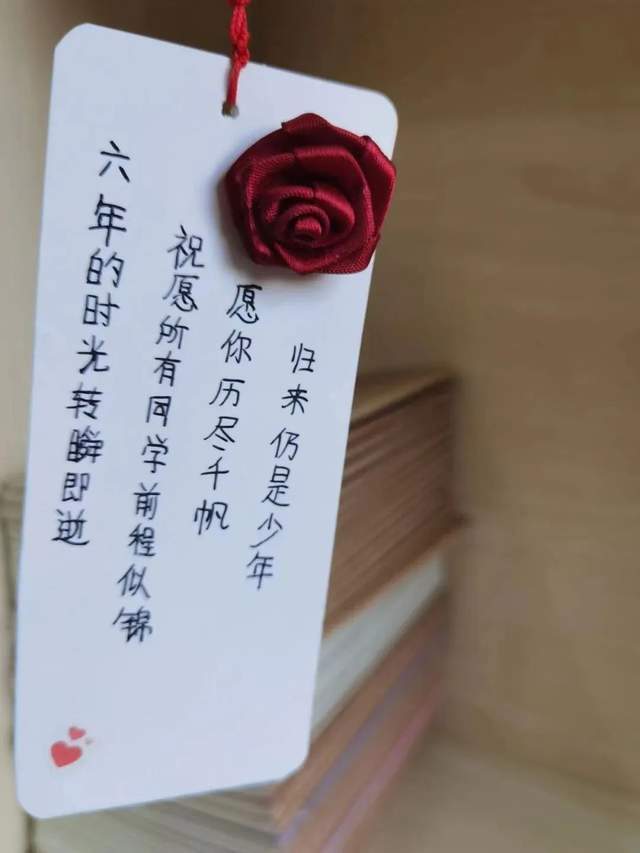 六年的时光转瞬即逝
祝愿所有同学前程似锦
愿你历尽千帆
归来仍是少年